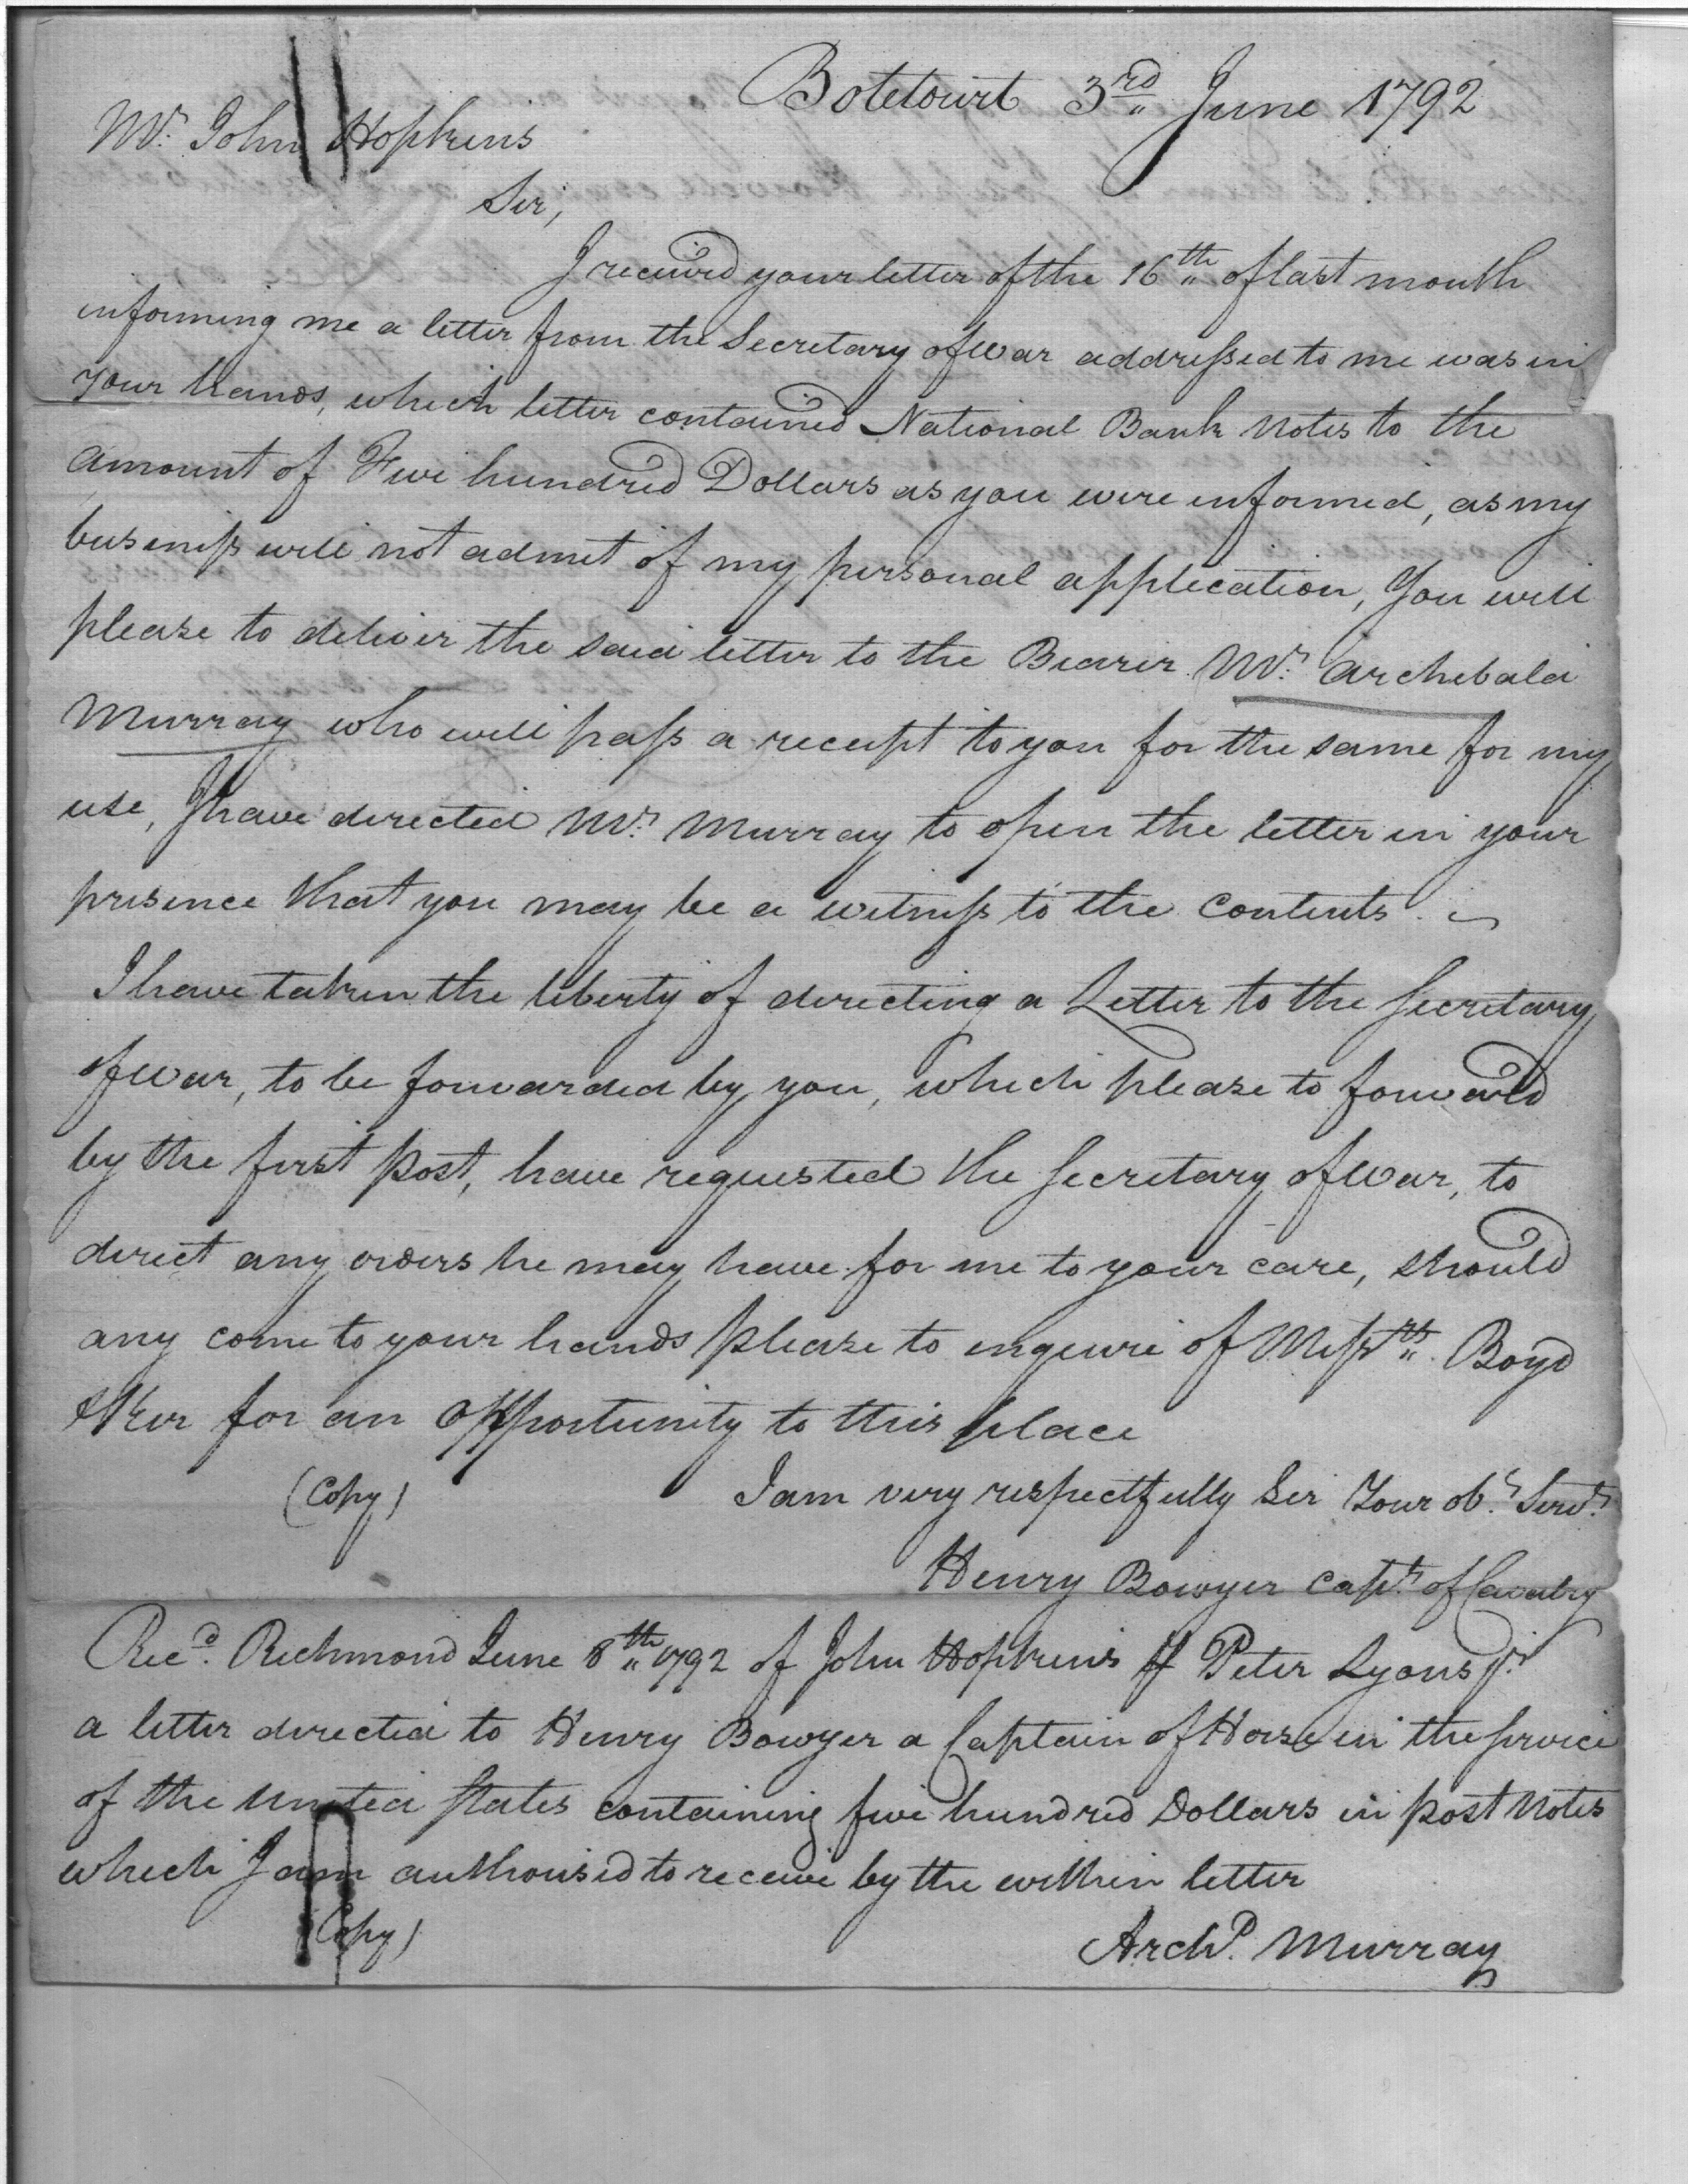 Botetourt 3rd June 1792
Mr. John Hopkins
Sir,
I received your letter of the 16th of last month
informing me a letter from the Secretary of War addressed to me was in
your hands, which letter contained National Bank Notes to the
amount of Five hundred Dollars as you were informed, as my
business will not admit of my personal application, You will
please to deliver the said letter to the Bearer Mr. Archibald
Murray who will pass a receipt to you for the same for my
use, I have directed Mr. Murray to open the letter in your
presence that you may be a witness to the Contents.
I have taken the liberty of directing a Letter to the Secretary
of War, to be forwarded by you, which please to forward
by the first post, have requested the Secretary of War, to
direct any orders he may have for me to your care, should
any come to your hands please to enquire of Messrs. Boyd
&Ker for an opportunity to this place
(Copy) I am very respectfully Sir Your obt. Servt.
Henry Bowyer Capt. of Cavalry
Recd. Richmond June 8th 1792 of John Hopkins Peter Lyons jr.
a letter directed to Henry Bowyer a Captain of Horse in the service
of the United States containing five hundred Dollars in post Notes
which I am authorised to receive by the within letter
(Copy) Archd. Murray